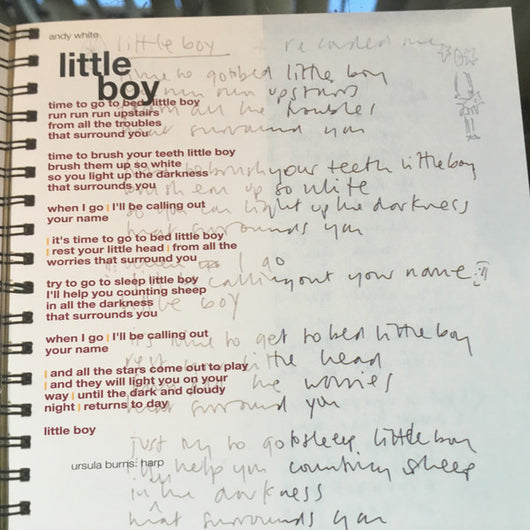 andy white
little
boy
time to go to bed little boy
run run run upstairs
from all the troubles
that surround you
time to brush your teeth little boy
brush them up so white
so you light up the darkness
that surrounds you
when I go | I'll be calling out
your name
| it's time to go to bed little boy
| rest your little head | from all the
worries that surround you
try to go to sleep little boy
I'll help you counting sheep
in all the darkness
that surrounds you
when I go | I'll be calling out
your name
| and all the stars come out to play
| and they will light you on your
way | until the dark and cloudy
night | returns to day
little boy
ursula burns: harp
little boy
time to go to bed little boy
run run upstairs
all the troubles
surround you
brush your teeth little boy
so white
so you can light up the darkness
that surrounds you
when I go
calling out your name
boy
time to get to bed little boy
little head
the worries
surround you
just try to go to sleep little boy
help you counting sheep
in the darkness
that surrounds you